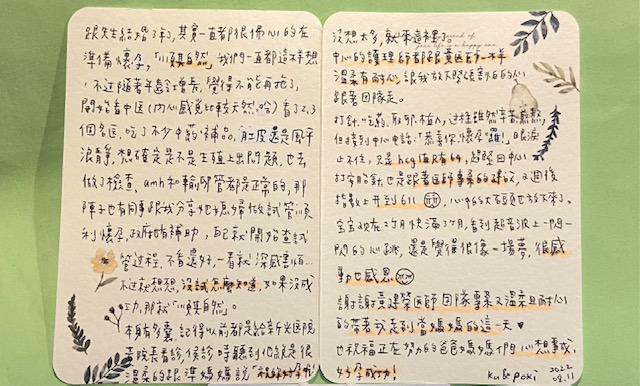 跟先生結婚3年了,其實一直都很佛心的在
準備懷孕,「順其自然」我們一直都這樣想
不過隨著年齡增長,覺得不能再拖了,
開始看中醫(內心感覺比較天然,哈)看了2、3
個名醫,吃了不少中藥補品,肚皮還是風平
浪靜,想確定是不是生殖上出問題,也去
做了檢查,amh和輸卵管都是正常的,那
陣子也有同事跟我分享她媳婦做試管順
利懷孕,政府也有補助,自己就開始查試
管過程,不看還好,一看就深感害怕…
不過就想想,沒試怎麼知道,如果沒成
功,那就「順其自然」。
本身有多囊,記得以前都是給新光醫院
黃院長看診,候診時聽到他說是很
溫柔的跟準媽媽說「祝妳好孕!」
沒想太多,就來這裡了。
中心的護理師都跟黃医師一樣
溫柔有耐心,讓我放下緊張對的心
跟著團隊走。
打針、吃藥、取卵、植入,過程雖然辛苦
但接到中心電話:「恭喜你,懷孕囉!」眼淚
止不住,只是hcg值只有64,趕緊回中心
打安胎針,也是跟著医師專業的建议,2週後
指數上升到611,心中的大石頭也放下來了。
宝宝现在2个月快满3个月,看到超音波上一閃一
閃的心跳,還是覺得很像一場夢,很感
動也感恩
謝謝黃建榮医師團隊專業又溫柔且耐心
的帶著我走到當媽媽的這一天♥
也祝福正在努力的爸爸媽媽們心想事成,
好孕成功!
Ku&Poki
2022
08.11